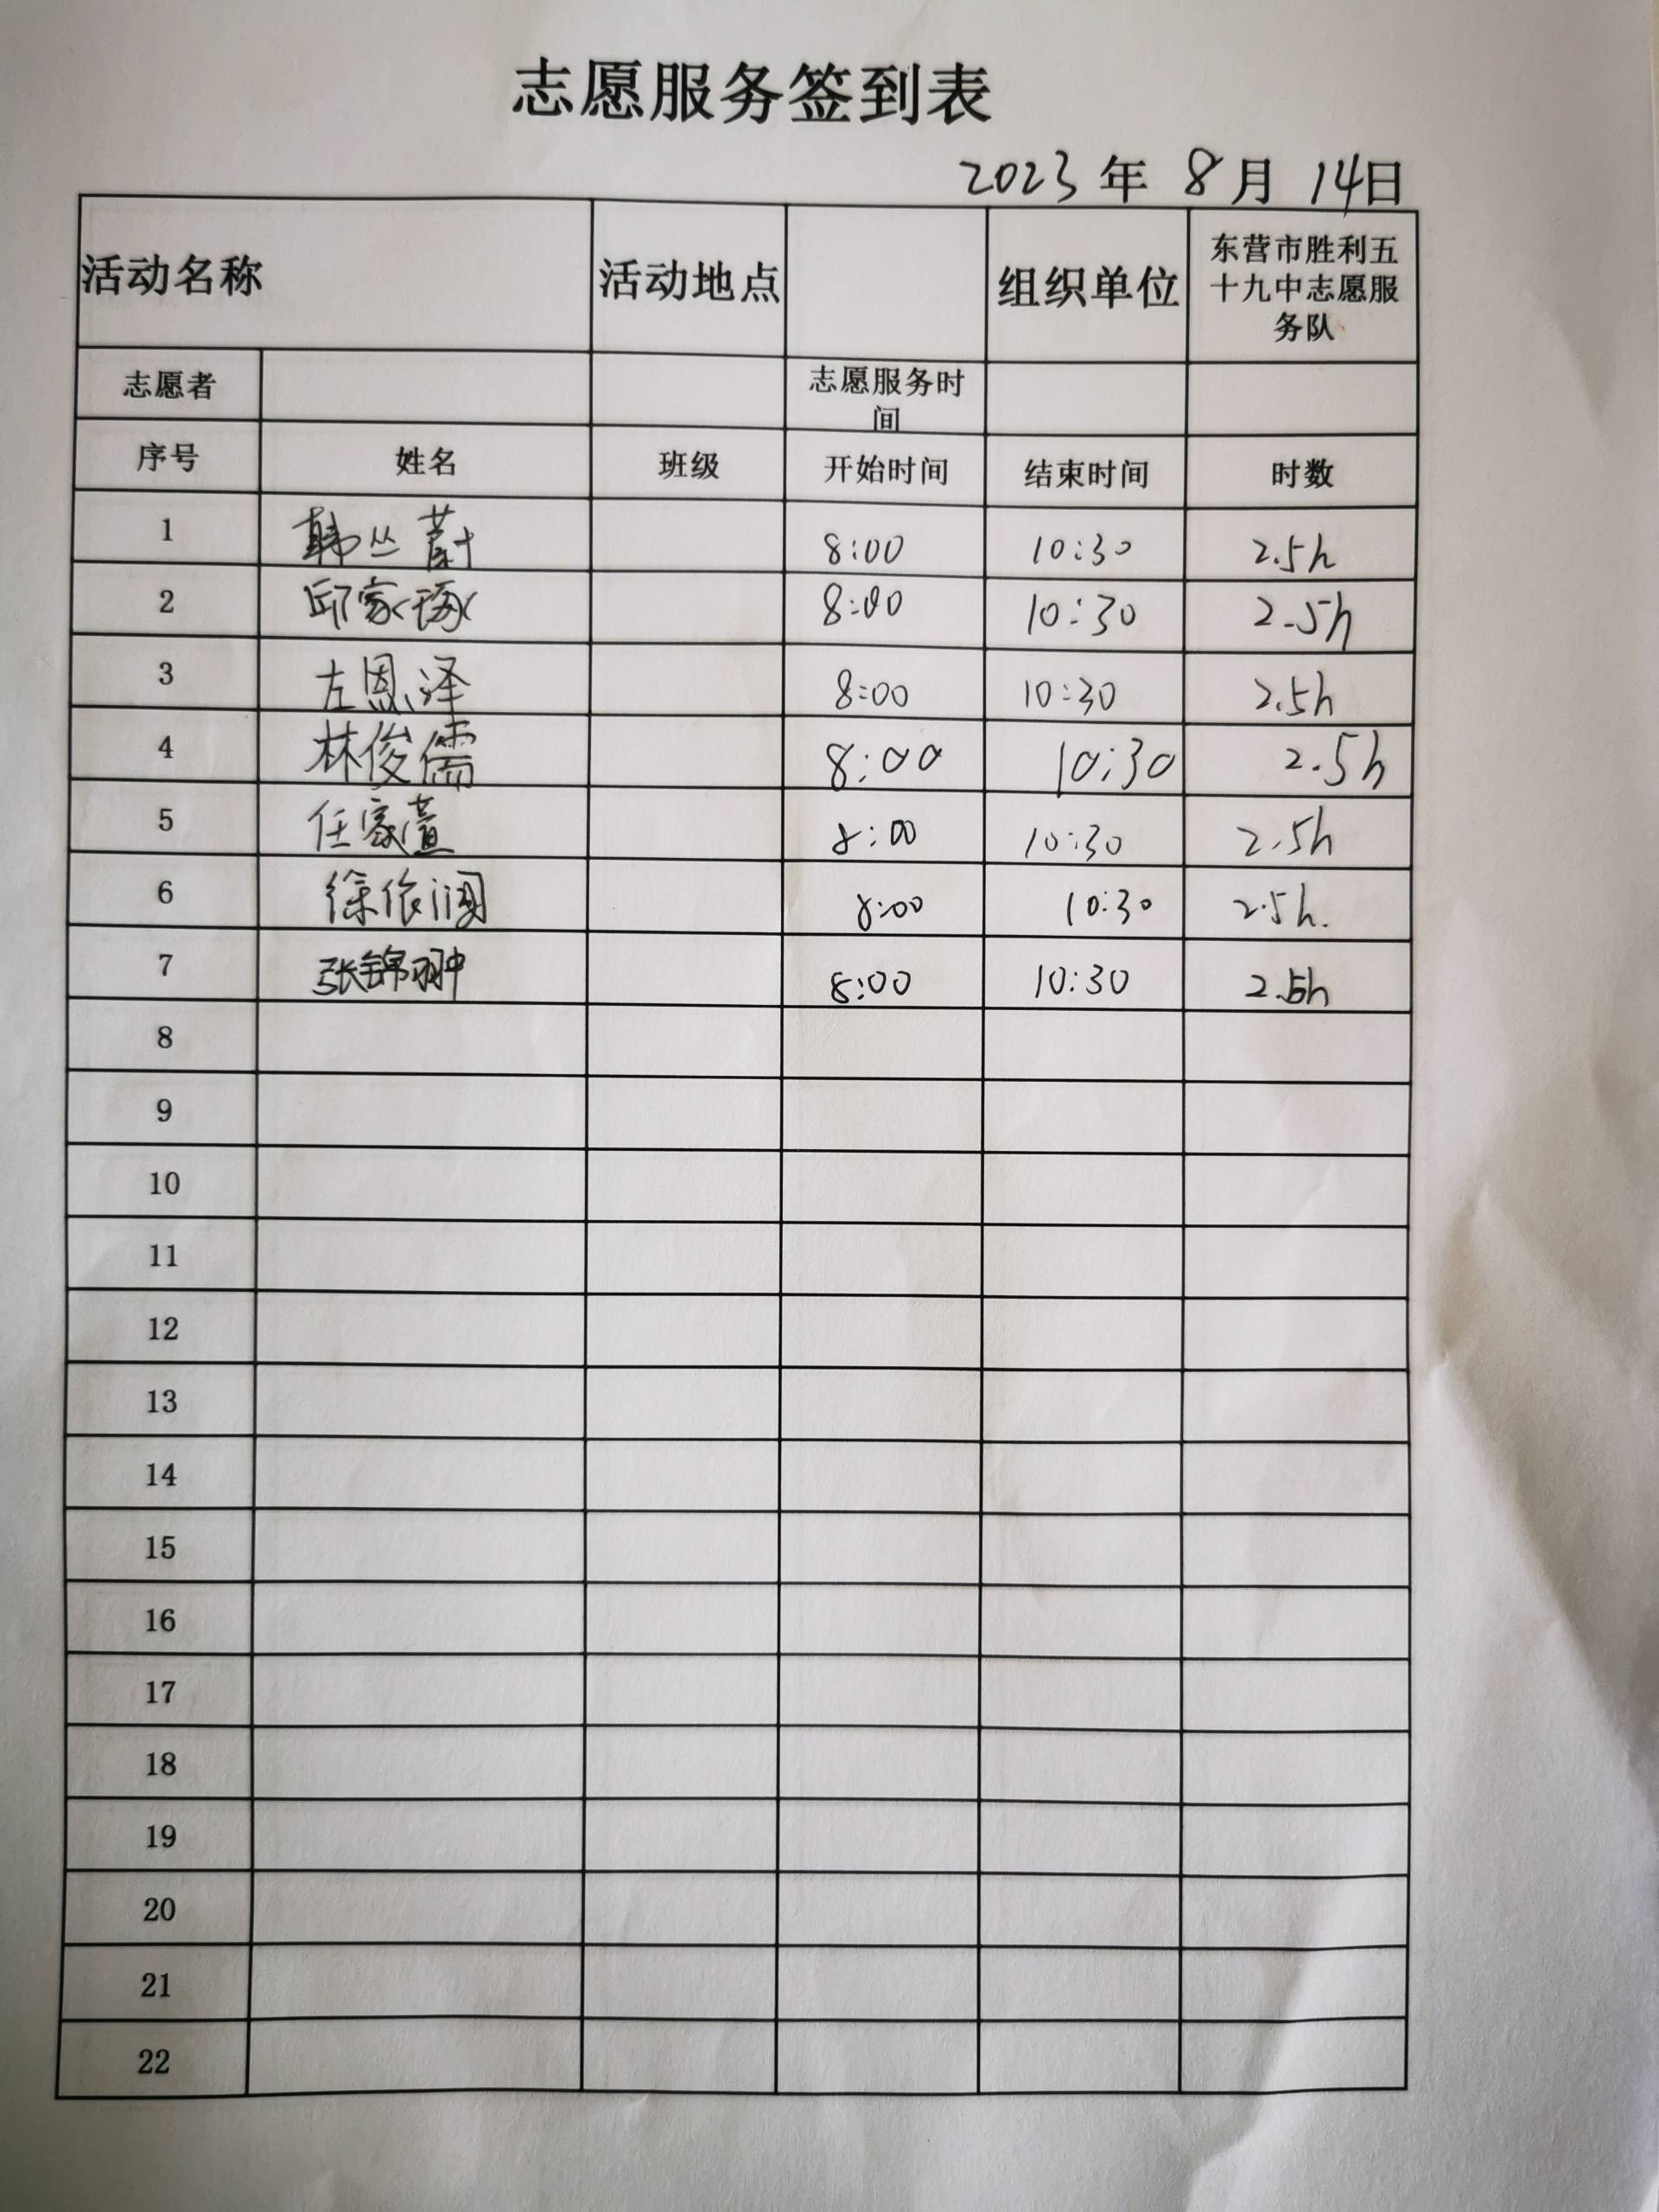 志愿服务签到表
2023 年 8 月 14日
活动名称 活动地点 组织单位 东营市胜利五
十九中志愿服
务队
志愿者 志愿服务时
间
序号 姓名 班级 开始时间 结束时间 时数
1 韩丛蔚 8:00 10:30 2.5h
2 邱家 8:00 10:30 2.5h
3 左恩泽 8:00 10:30 2.5h
4 林俊儒 8:00 10:30 2.5h
5 任家萱 8:00 10:30 2.5h
6 徐依 8:00 10:30 2.5h.
7 张锦翀 8:00 10:30 2.5h
8
9
10
11
12
13
14
15
16
17
18
19
20
21
22